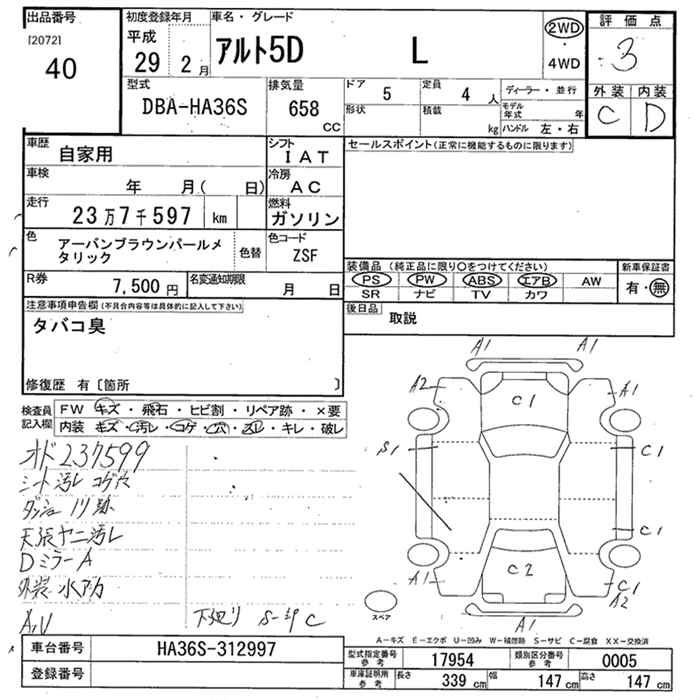 出品番号
[2072]
40
初度登録年月
平成
29 2 月
車名・グレード
アルト5D L
2WD
・
4WD
評価点
3
外装 内装
C D
型式
DBA-HA36S
排気量
658
CC
ドア 5
定員 4 人
形状
積載 kg
ディーラー・並行
モデル年式 年
ハンドル 左・右
車歴 自家用
シフト IAT
車検 年 月( 日)
冷房 AC
走行 23万7千597 km
燃料 ガソリン
色 アーバンブラウンパールメタリック
色替
色コード ZSF
R券 7,500 円
名変通知期限 月 日
セールスポイント(正常に機能するものに限ります)
装備品 (純正品に限り〇をつけてください)
PS PW ABS エアB AW
SR ナビ TV カワ
新車保証書
有・無
後日品 取説
注意事項申告欄(不具合内容等は具体的に記入して下さい)
タバコ臭
修復歴 有〔箇所 〕
検査員記入欄
FW キズ・飛石・ヒビ割・リペア跡・×要
内装 キズ・汚レ・コゲ・穴・スレ・キレ・破レ
オド 237599
シート汚レ コゲ穴
天張ヤニ汚レ
DミラーA
外装 水アカ
A,U
下廻り S-中C
A1 A1
A2 A1
C1
S1 C1
C1
C2
A1 C1
A2
A1
スペア
A-キズ E-エクボ U-凹み W-補修跡 S-サビ C-腐食 XX-交換済
車台番号 HA36S-312997
登録番号
型式指定番号参考 17954
類別区分番号参考 0005
車庫証明所参考 長さ 339 cm 幅 147 cm 高さ 147 cm